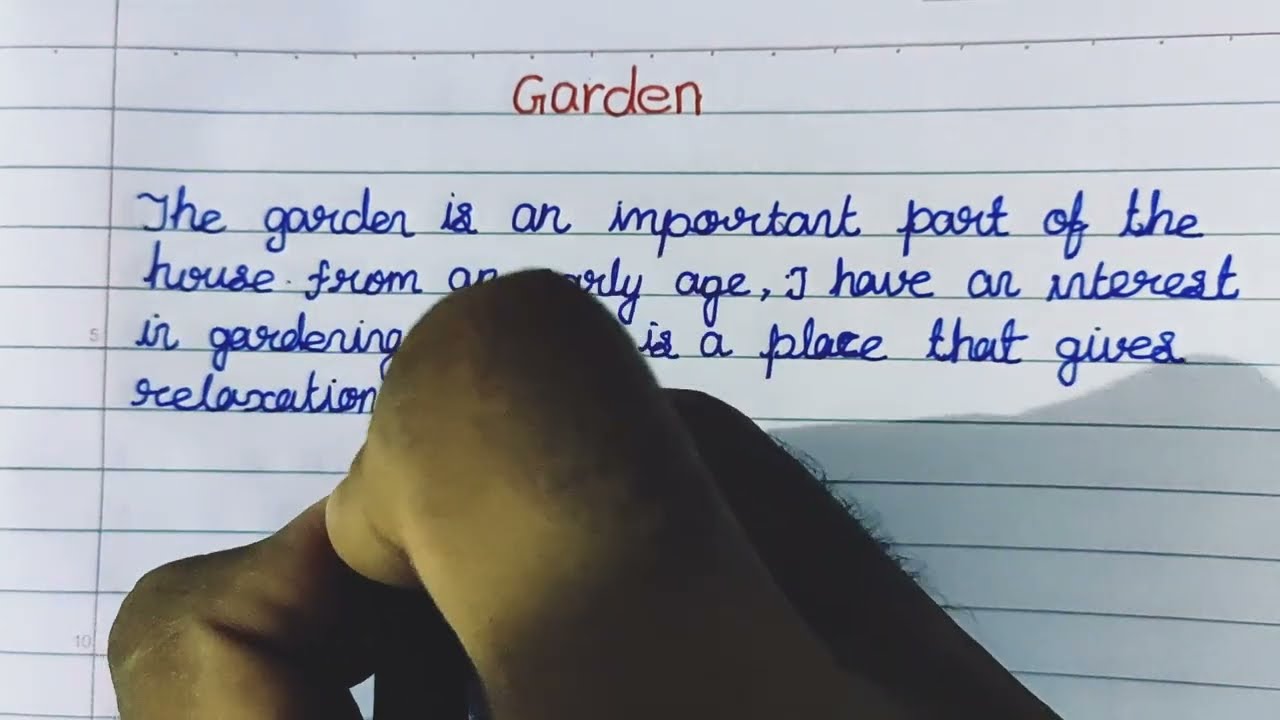 Garden
The garden is an important part of the
house. from an age, I have an interest
in gardening is a place that gives
relaxation
5
10